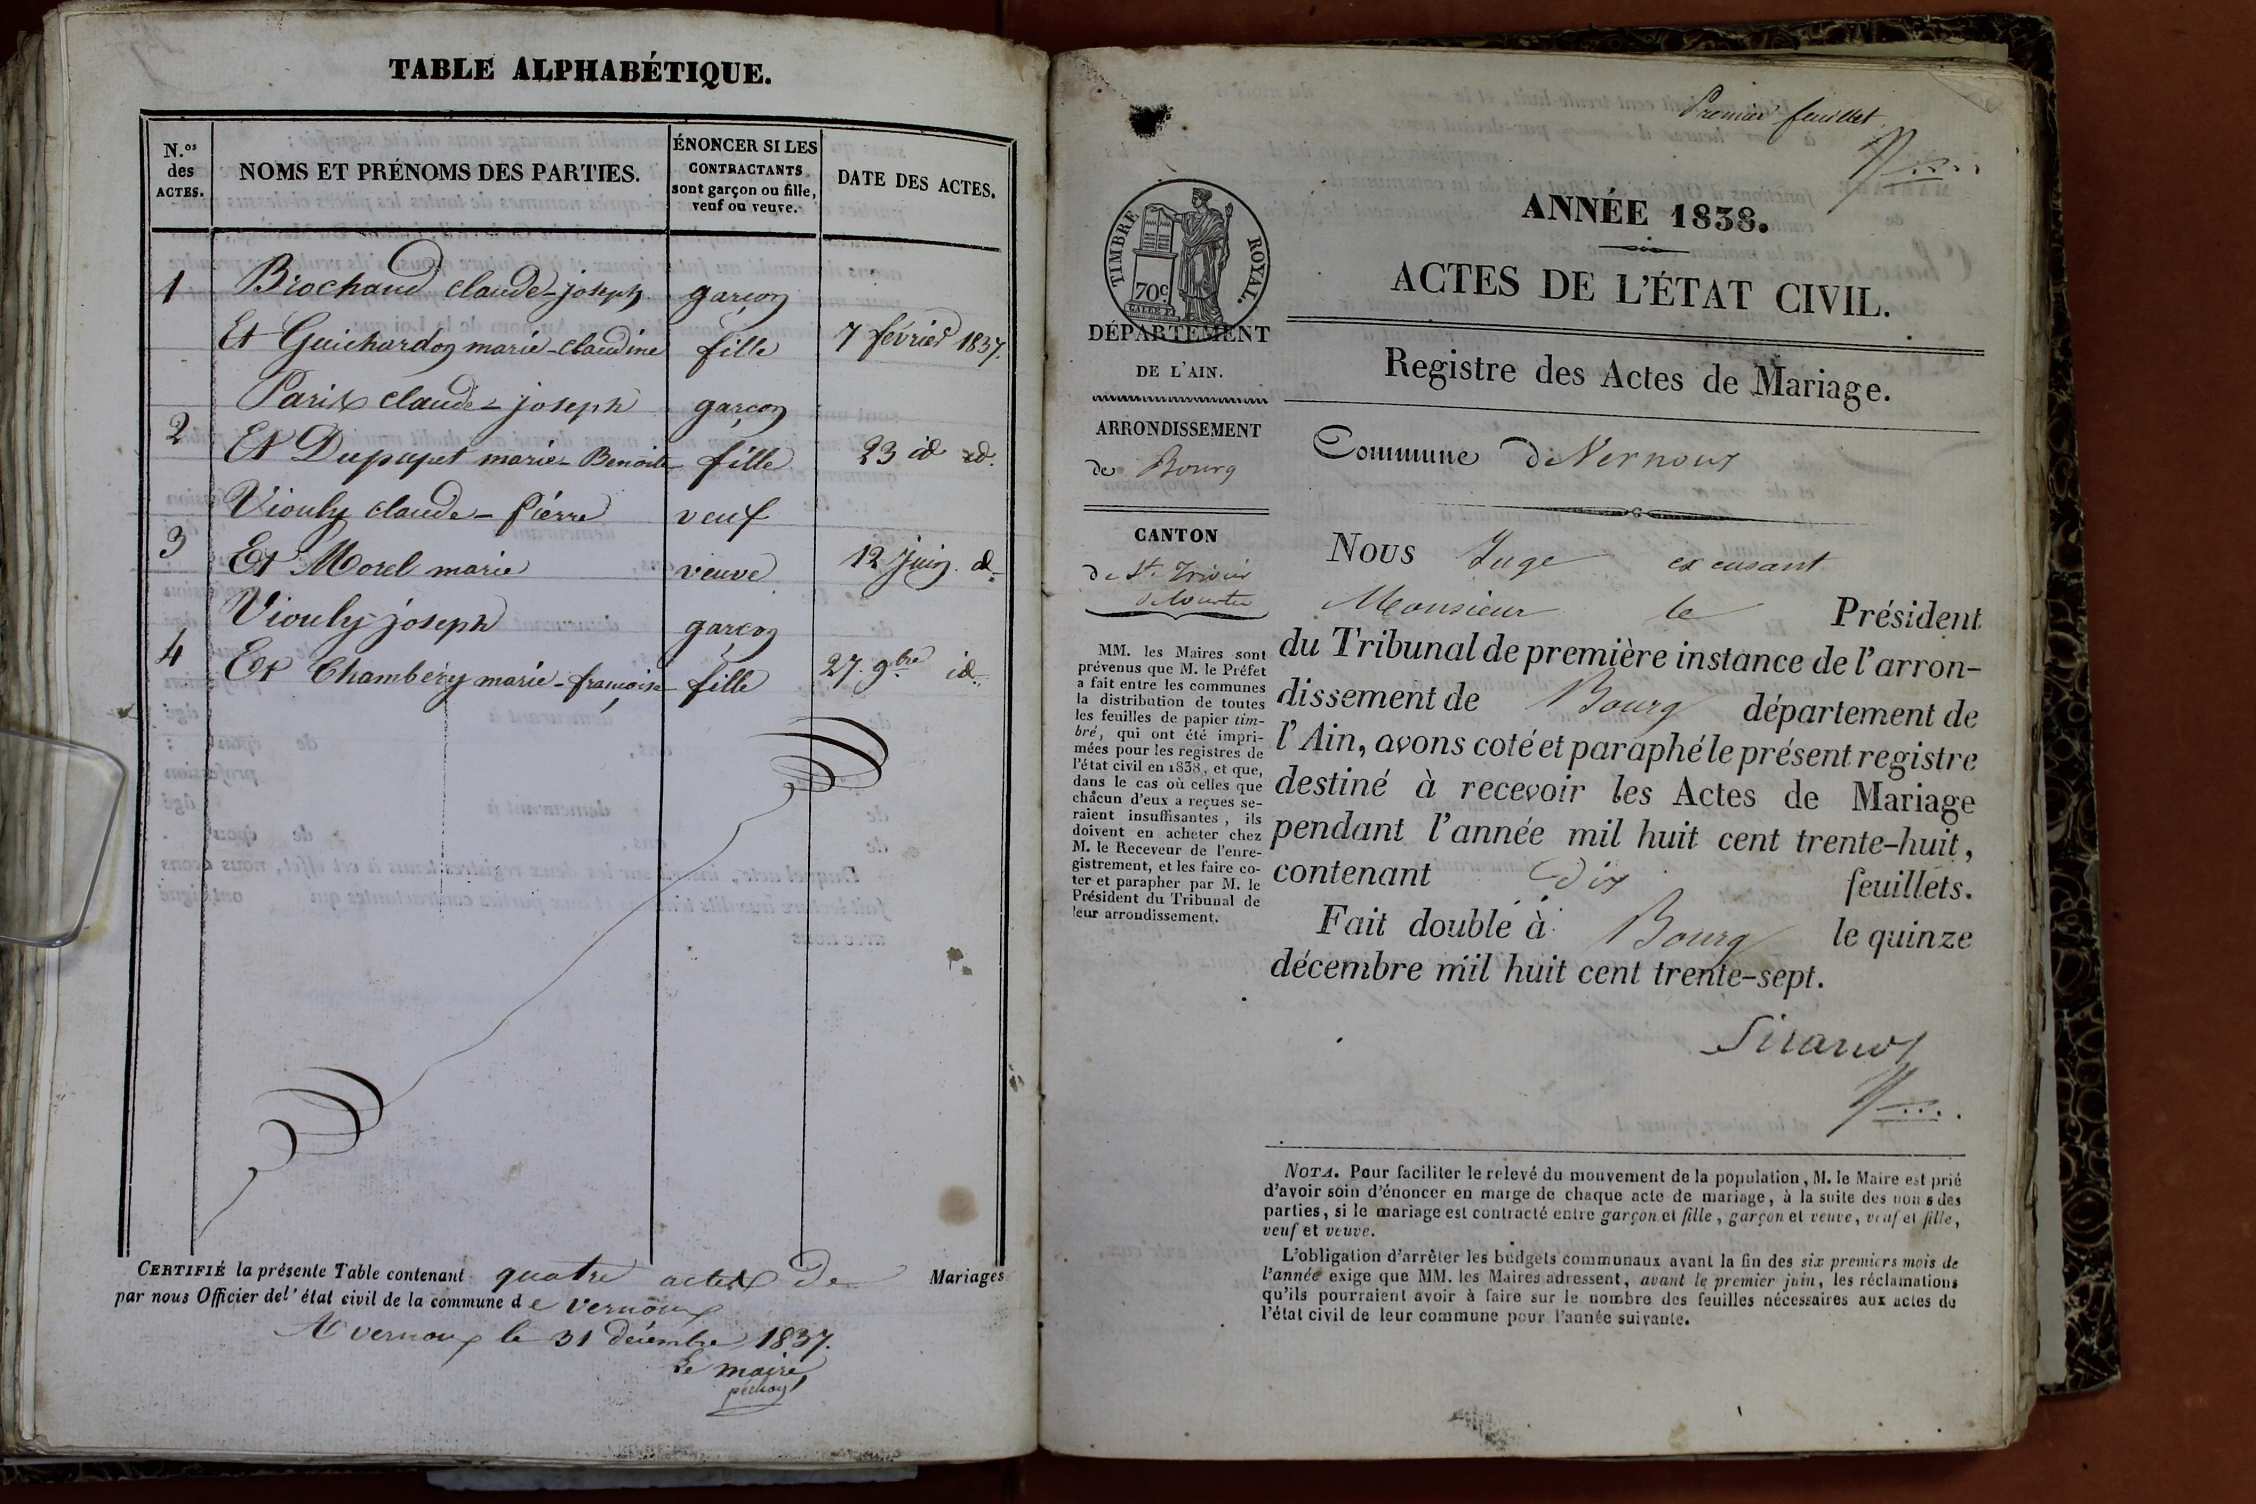 TABLE ALPHABÉTIQUE.
N.os des ACTES.
NOMS ET PRÉNOMS DES PARTIES.
ÉNONCER SI LES CONTRACTANTS sont garçon ou fille, veuf ou veuve.
DATE DES ACTES.
1 Brochand claude-joseph garçon
Et Guichardon marie-claudine fille 7 février 1837.
Parix claude-joseph garçon
2 Et Dupupet marie-Benoite fille 23 id id.
Viouly claude-pierre veuf
3 Et Morel marie veuve 12 juin id.
Viouly joseph garçon
4 Et Chambery marie-françoise fille 27 9bre id.
CERTIFIÉ la présente Table contenant quatre actes de Mariages
par nous Officier de l'état civil de la commune de vernoux
A vernoux le 31 décembre 1837.
Le maire
Premier feuillet
TIMBRE ROYAL.
70c
ANNÉE 1838.
ACTES DE L'ÉTAT CIVIL.
DÉPARTEMENT
DE L'AIN.
ARRONDISSEMENT
de Bourg
CANTON
de St Trivier
de Courtes
MM. les Maires sont
prévenus que M. le Préfet
a fait entre les communes
la distribution de toutes
les feuilles de papier tim-
bré, qui ont été impri-
mées pour les registres de
l'état civil en 1838, et que,
dans le cas où celles que
chacun d'eux a reçues se-
raient insuffisantes, ils
doivent en acheter chez
M. le Receveur de l'enre-
gistrement, et les faire co-
ter et parapher par M. le
Président du Tribunal de
leur arrondissement.
Registre des Actes de Mariage.
Commune de Vernoux
Nous Juge excusant
Monsieur le Président
du Tribunal de première instance de l'arron-
dissement de Bourg département de
l'Ain, avons coté et paraphé le présent registre
destiné à recevoir les Actes de Mariage
pendant l'année mil huit cent trente-huit,
contenant dix feuillets.
Fait double à Bourg le quinze
décembre mil huit cent trente-sept.
NOTA. Pour faciliter le relevé du mouvement de la population, M. le Maire est prié
d'avoir soin d'énoncer en marge de chaque acte de mariage, à la suite des noms des
parties, si le mariage est contracté entre garçon et fille, garçon et veuve, veuf et fille,
veuf et veuve.
L'obligation d'arrêter les budgets communaux avant la fin des six premiers mois de
l'année exige que MM. les Maires adressent, avant le premier juin, les réclamations
qu'ils pourraient avoir à faire sur le nombre des feuilles nécessaires aux actes de
l'état civil de leur commune pour l'année suivante.